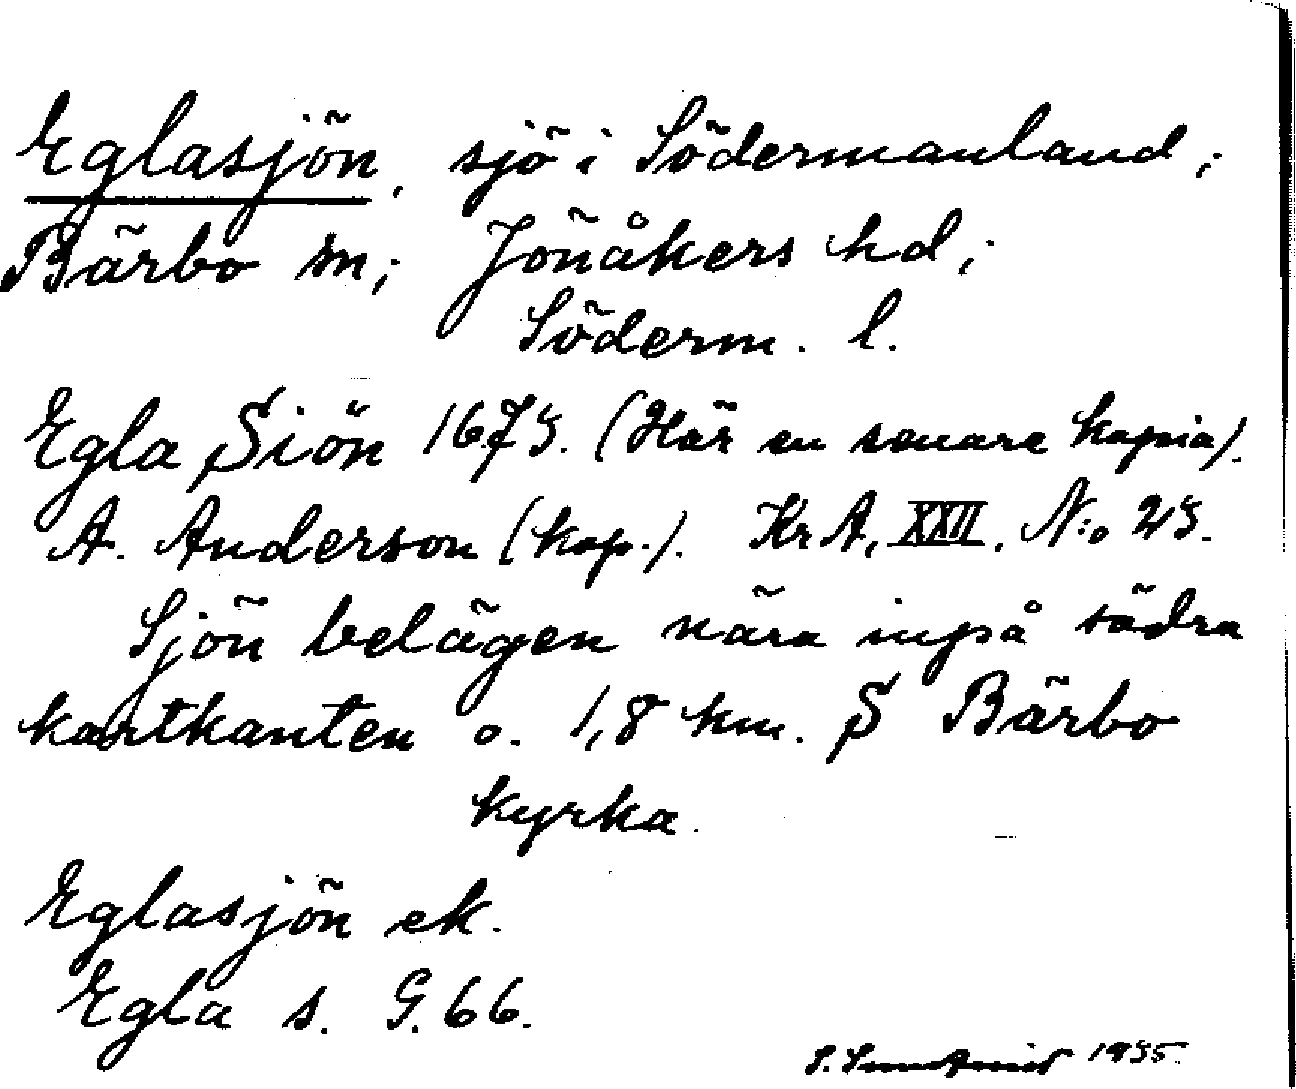 Eglasjön, sjö i Södermanland;
Bärbo sn; Jönåkers hd;
Söderm. l.
Egla Siön 1673. (Här en senare kopia).
A. Anderson (kop.). Kr A, XXII, N:o 23.
Sjön belägen nära inpå södra
kartkanten o. 1,8 km. S Bärbo
kyrka.
Eglasjön ek.
Egla s. G. 66.
S. 1935.